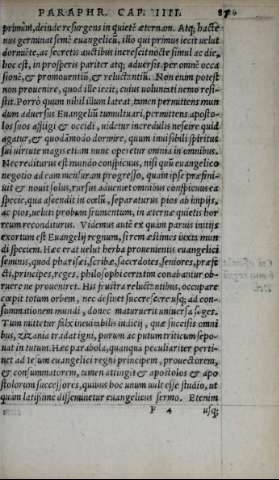 PARAPHR. CAP. IIII.
primùm, deinde resurgens in quietē æternam. Atq; hacte
nus germinat semē euangelicũ, illo qui primus iecit uelut
dormiēte, ac secretis auctibus increscit nocte simul ac die,
hoc est, in prosperis pariter atq; aduersis. per omnē occa
sionē, & promouentiũ, & reluctantiũ. Non enim potest
non prouenire, quod ille iecit, cuius uoluntati nemo resi-
stit. Porrò quum nihil illum lateat, tamen permittens mun
dum aduersus Euangeliũ tumultuari, permittens aposto-
los suos affligi & occidi, uidetur increduli nescire quid
agatur, & quodāmodo dormire, quum inuisibili spiritus
sui uirtute magis etiam nunc operetur omnia in omnibus.
Nec reditturus est mundo conspicuus, nisi quũ euangelico
negotio ad eam mensuram progresso, quam ipse præfini-
uit & nouit solus, rursus adueniet omnibus conspicuus ea
specie, qua ascendit in cœlũ, separaturus pios ab impijs,
ac pios, ueluti probum frumentum, in æternæ quietis hor
reum reconditurus. Videmus autē ex quàm paruis initijs
exortum est Euangelij regnum, si rem æstimes iuxta mun
di speciem. Hæc erat uelut herba prouenientis euangelici
seminis, quod pharisæi, scribæ, sacerdotes, seniores, præfe
cti, principes, reges, philosophi certatim conabantur ob-
ruere ne proueniret. His frustra reluctantibus, occupare
cœpit totum orbem, nec desinet succrescere usq; ad con-
summationem mundi, donec maturuerit uniuersa seges.
Tum mittetur falx ineuitabilis iudicij, quæ succisis omni
bus, zizania tradat igni, purum ac putum triticum repo-
nat in tutum. Hæc parabola, quanquā peculiariter perti-
net ad Iesum euangelici regni principem, prouectorem,
& consummatorem, tamen attingit & apostolos & apo
stolorum successores, quibus hoc unum uult esse studio, ut
quàm latissime disseminetur euangelicus sermo. Etenim
F 4 usq;